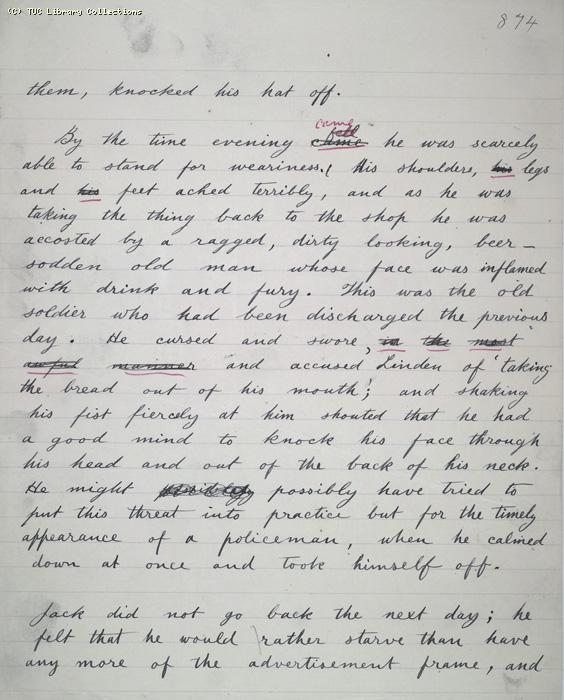 (C) TUC Library Collections
874
them, knocked his hat off.
came
fell
By the time evening came he was scarcely
able to stand for weariness. His shoulders, his legs
and his feet ached terribly, and as he was
taking the thing back to the shop he was
accosted by a ragged, dirty looking, beer-
sodden old man whose face was inflamed
with drink and fury. This was the old
soldier who had been discharged the previous
day. He cursed and swore, in the most
awful manner and accused Linden of 'taking
the bread out of his mouth'; and shaking
his fist fiercely at him shouted that he had
a good mind to knock his face through
his head and out of the back of his neck.
He might possibly have tried to
put this threat into practice but for the timely
appearance of a policeman, when he calmed
down at once and took himself off.
Jack did not go back the next day; he
felt that he would rather starve than have
any more of the advertisement frame, and